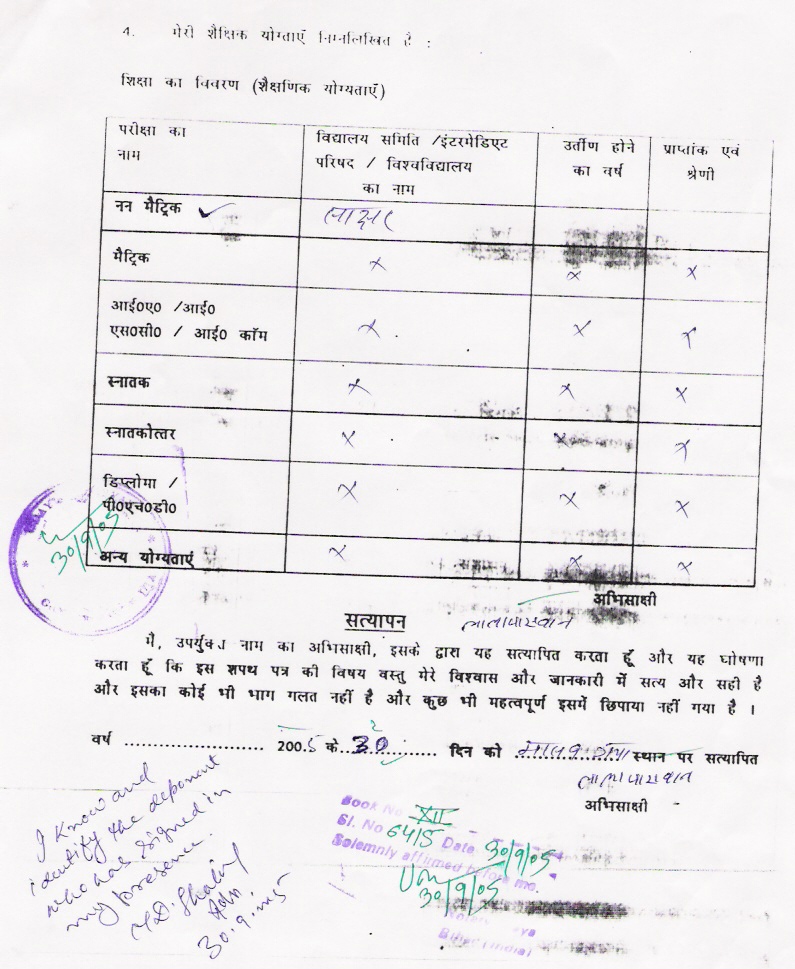 4. मेरी शैक्षिक योग्ताएँ निम्नलिखित है :
शिक्षा का विवरण (शैक्षणिक योग्यताएँ)
परीक्षा का नाम विद्यालय समिति /इंटरमेडिएट परिषद / विश्वविद्यालय का नाम उर्तीण होने का वर्ष प्राप्तांक एवं श्रेणी
नन मैट्रिक ✓ साक्षर
मैट्रिक x x x
आई०ए० /आई०
एस०सी० / आई० कॉम x x x
स्नातक x x x
स्नातकोत्तर x x x
डिप्लोमा /
पी०एच०डी० x x x
अन्य योग्यताएँ x x x
30/9/05
अभिसाक्षी
सत्यापन
मै, उपर्युक्त नाम का अभिसाक्षी, इसके द्वारा यह सत्यापित करता हूँ और यह घोषणा
करता हूँ कि इस शपथ पत्र की विषय वस्तु मेरे विश्वास और जानकारी में सत्य और सही है
और इसका कोई भी भाग गलत नहीं है और कुछ भी महत्वपूर्ण इसमें छिपाया नहीं गया है ।
वर्ष ........................ 200.5 के..30.......... दिन को स्थान पर सत्यापित
अभिसाक्षी
I know and
identify the deponent
who has signed in
my presence.
30.9.2005
Book No XII
Sl. No 6415 Date 30/9/05
Solemnly affirmed before me.
30/9/05
Bihar (India)